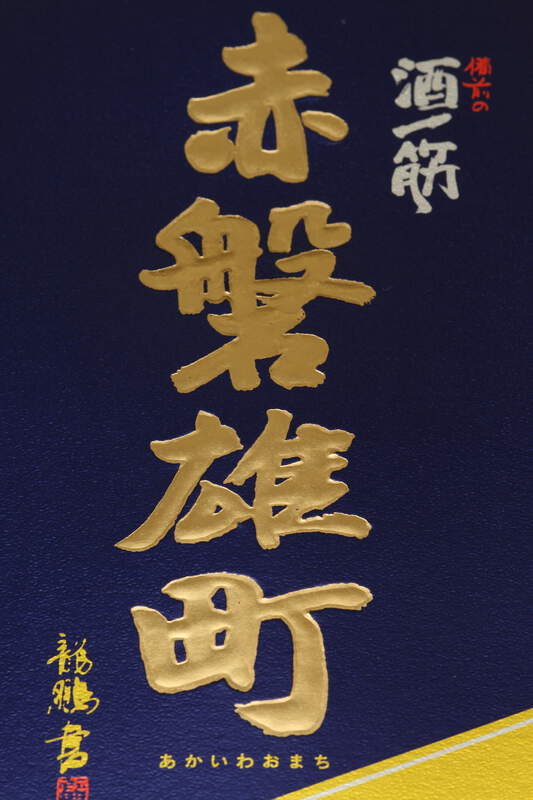 備前の
酒一筋
赤磐雄町
あかいわおまち
龍鵬書